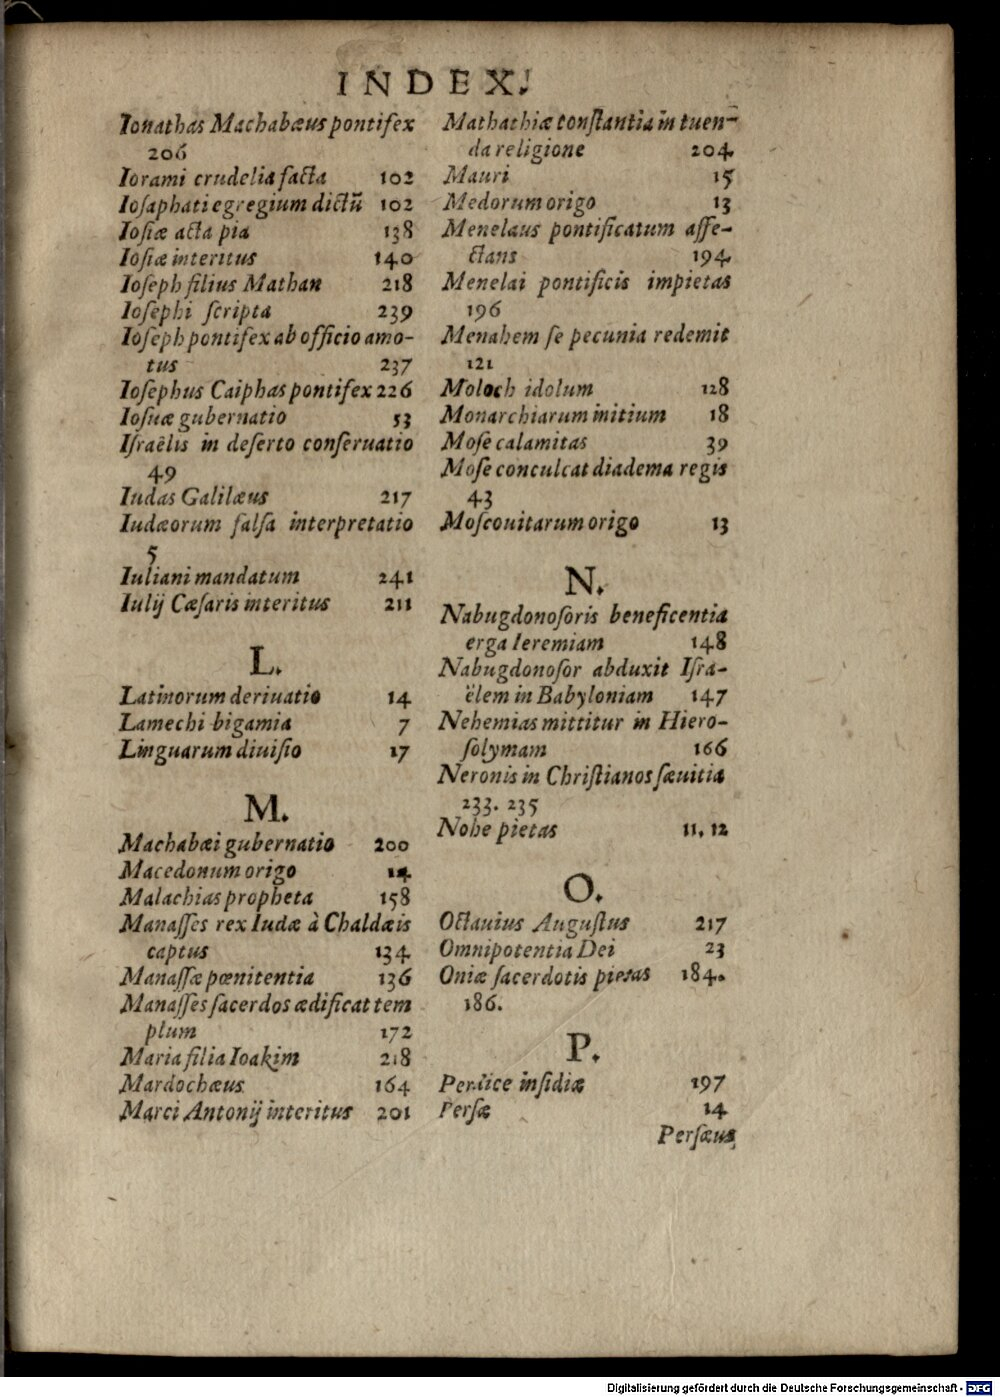 INDEX.
Ionathas Machabæus pontifex
206
Iorami crudelia facta 102
Iosaphati egregium dictũ 102
Iosiæ acta pia 138
Iosiæ interitus 140
Ioseph filius Mathan 218
Iosephi scripta 239
Ioseph pontifex ab officio amo-
tus 237
Iosephus Caiphas pontifex 226
Iosuæ gubernatio 53
Israêlis in deserto conseruatio
49
Iudas Galilæus 217
Iudæorum falsa interpretatio
5
Iuliani mandatum 241
Iulij Cæsaris interitus 211
L.
Latinorum deriuatio 14
Lamechi bigamia 7
Linguarum diuisio 17
M.
Machabæi gubernatio 200
Macedonum origo 14
Malachias propheta 158
Manasses rex Iudæ à Chaldæis
captus 134
Manassæ pœnitentia 136
Manasses sacerdos ædificat tem
plum 172
Maria filia Ioakim 218
Mardochæus 164
Marci Antonij interitus 201
Mathathiæ constantia in tuen-
da religione 204
Mauri 15
Medorum origo 13
Menelaus pontificatum affe-
ctans 194
Menelai pontificis impietas
196
Menahem se pecunia redemit
121
Moloch idolum 128
Monarchiarum initium 18
Mose calamitas 39
Mose conculcat diadema regis
43
Moscouitarum origo 13
N.
Nabugdonosoris beneficentia
erga Ieremiam 148
Nabugdonosor abduxit Isra-
ëlem in Babyloniam 147
Nehemias mittitur in Hiero-
solymam 166
Neronis in Christianos sæuitia
233. 235
Nohe pietas 11. 12
O.
Octauius Augustus 217
Omnipotentia Dei 23
Oniæ sacerdotis pietas 184.
186.
P.
Perdice insidiæ 197
Persæ 14
Persæus
Digitalisierung gefördert durch die Deutsche Forschungsgemeinschaft - DFG